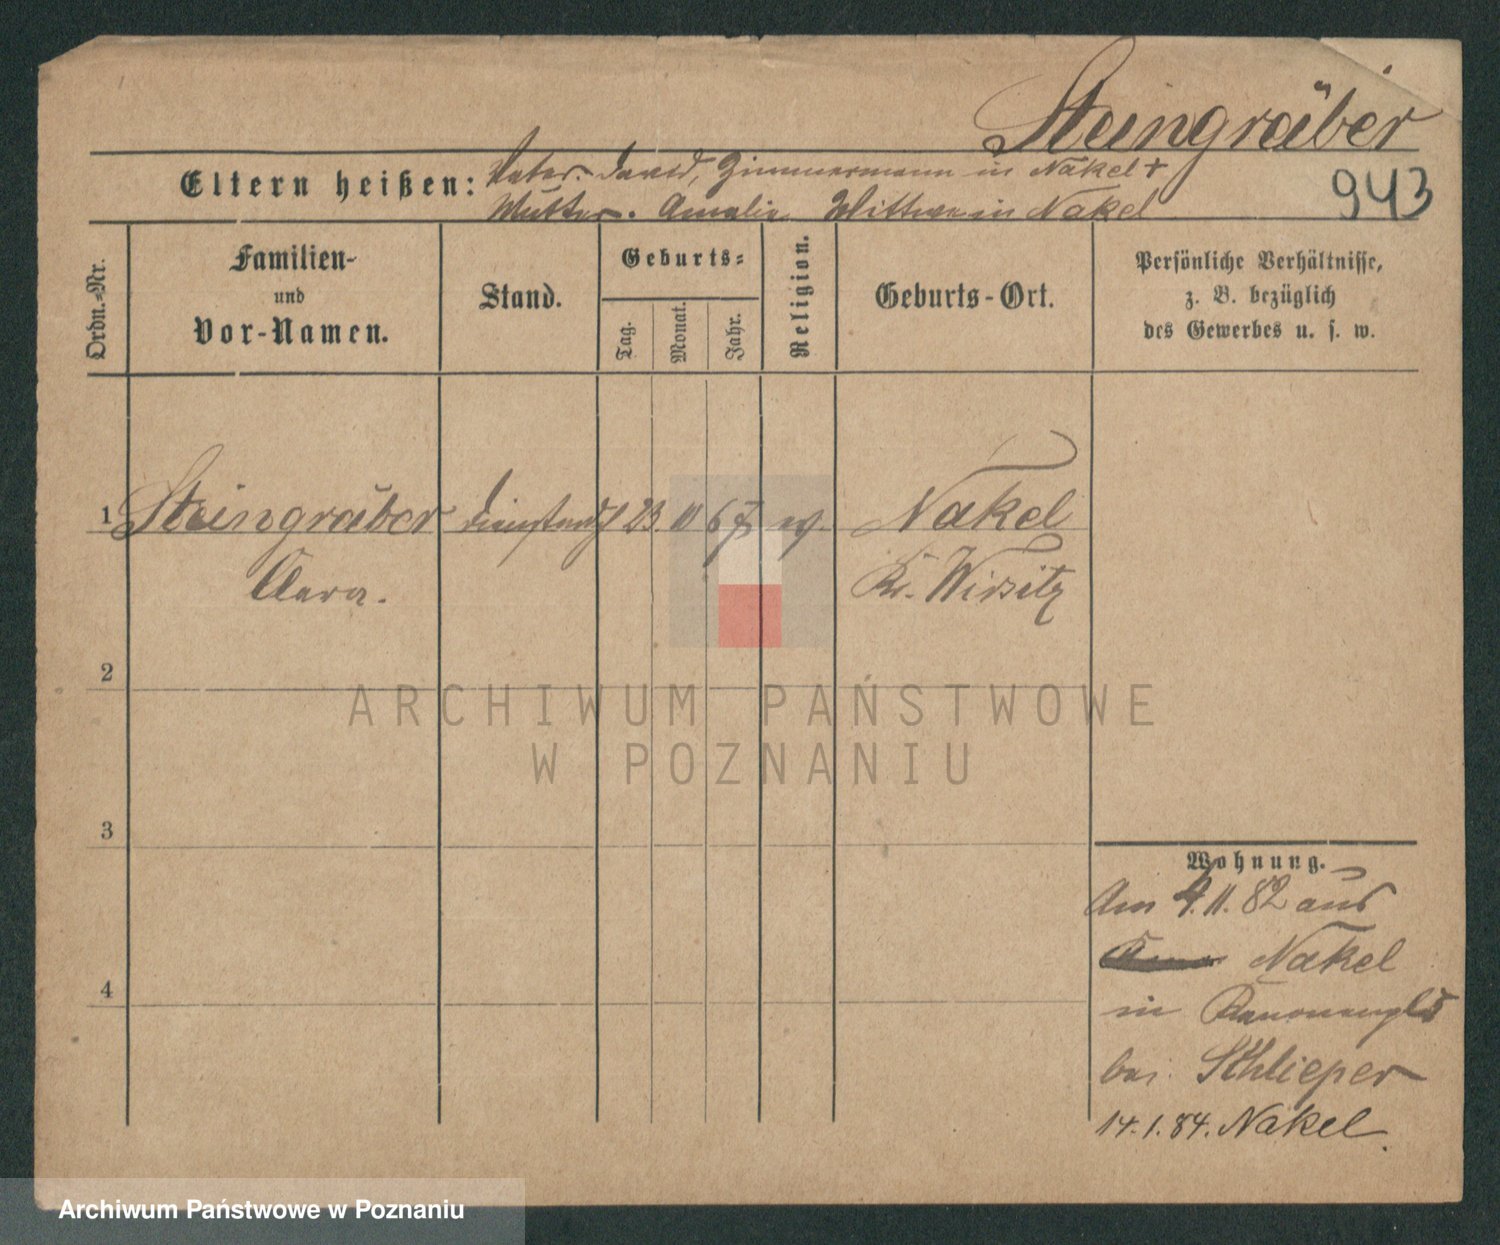 Steingräber
943
Eltern heißen: Vater. David, Zimmermann in Nakel +
Mutter. Amalie Wittwe in Nakel
Ordn.-Nr.
Familien-
und
Vor-Namen.
Stand.
Geburts-
Tag.
Monat.
Jahr.
Religion.
Geburts-Ort.
Persönliche Verhältnisse,
z. B. bezüglich
des Gewerbes u. s. w.
1 Steingräber 23 11 ev. Nakel
Clara. Kr. Wirsitz
2
ARCHIWUM PAŃSTWOWE
W POZNANIU
3
4
Wohnung.
Am 4.11.82 aus
Nakel
in
bei Schlieper
14.1.84. Nakel.
Archiwum Państwowe w Poznaniu